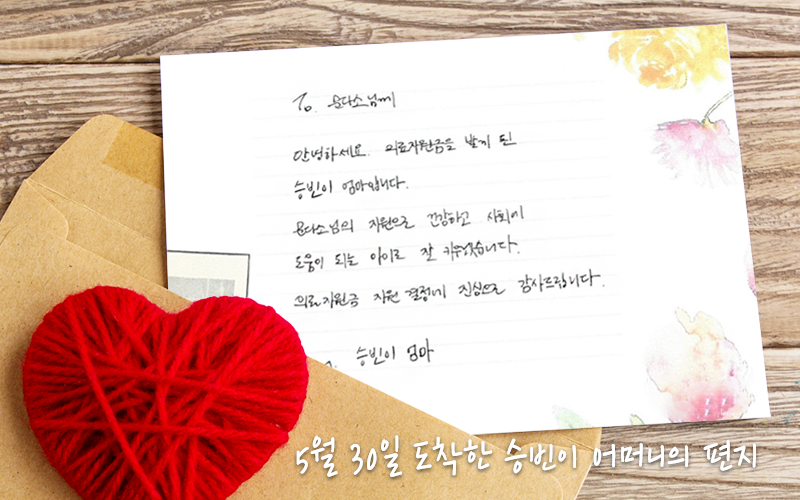 To. 용다소님께
안녕하세요. 의료지원금을 받게 된
승빈이 엄마입니다.
용다소님의 지원으로 건강하고 사회에
도움이 되는 아이로 잘 키우겠습니다.
의료지원금 지원 결정에 진심으로 감사드립니다.
승빈이 엄마
5월 30일 도착한 승빈이 어머니의 편지